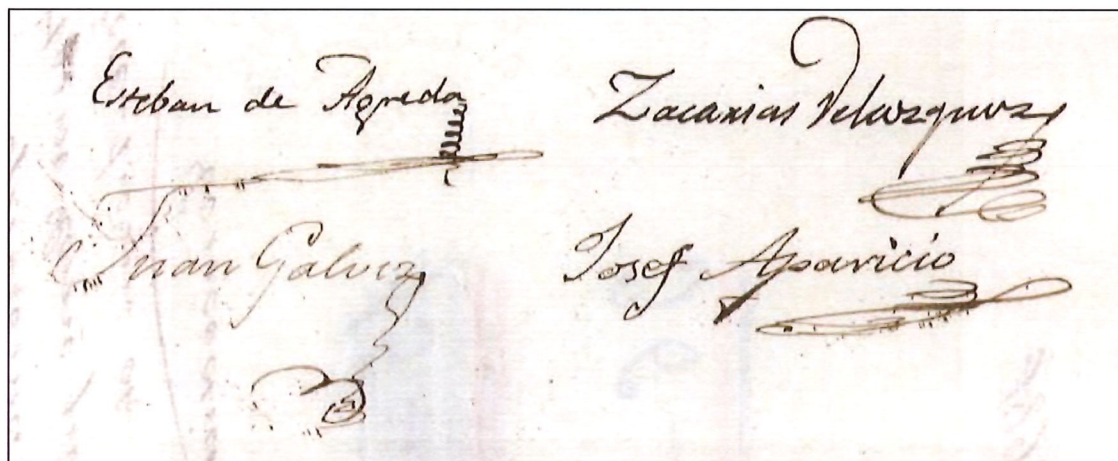 Esteban de Agreda
Zacarias Velazquez
Juan Galvez
Josef Aparicio